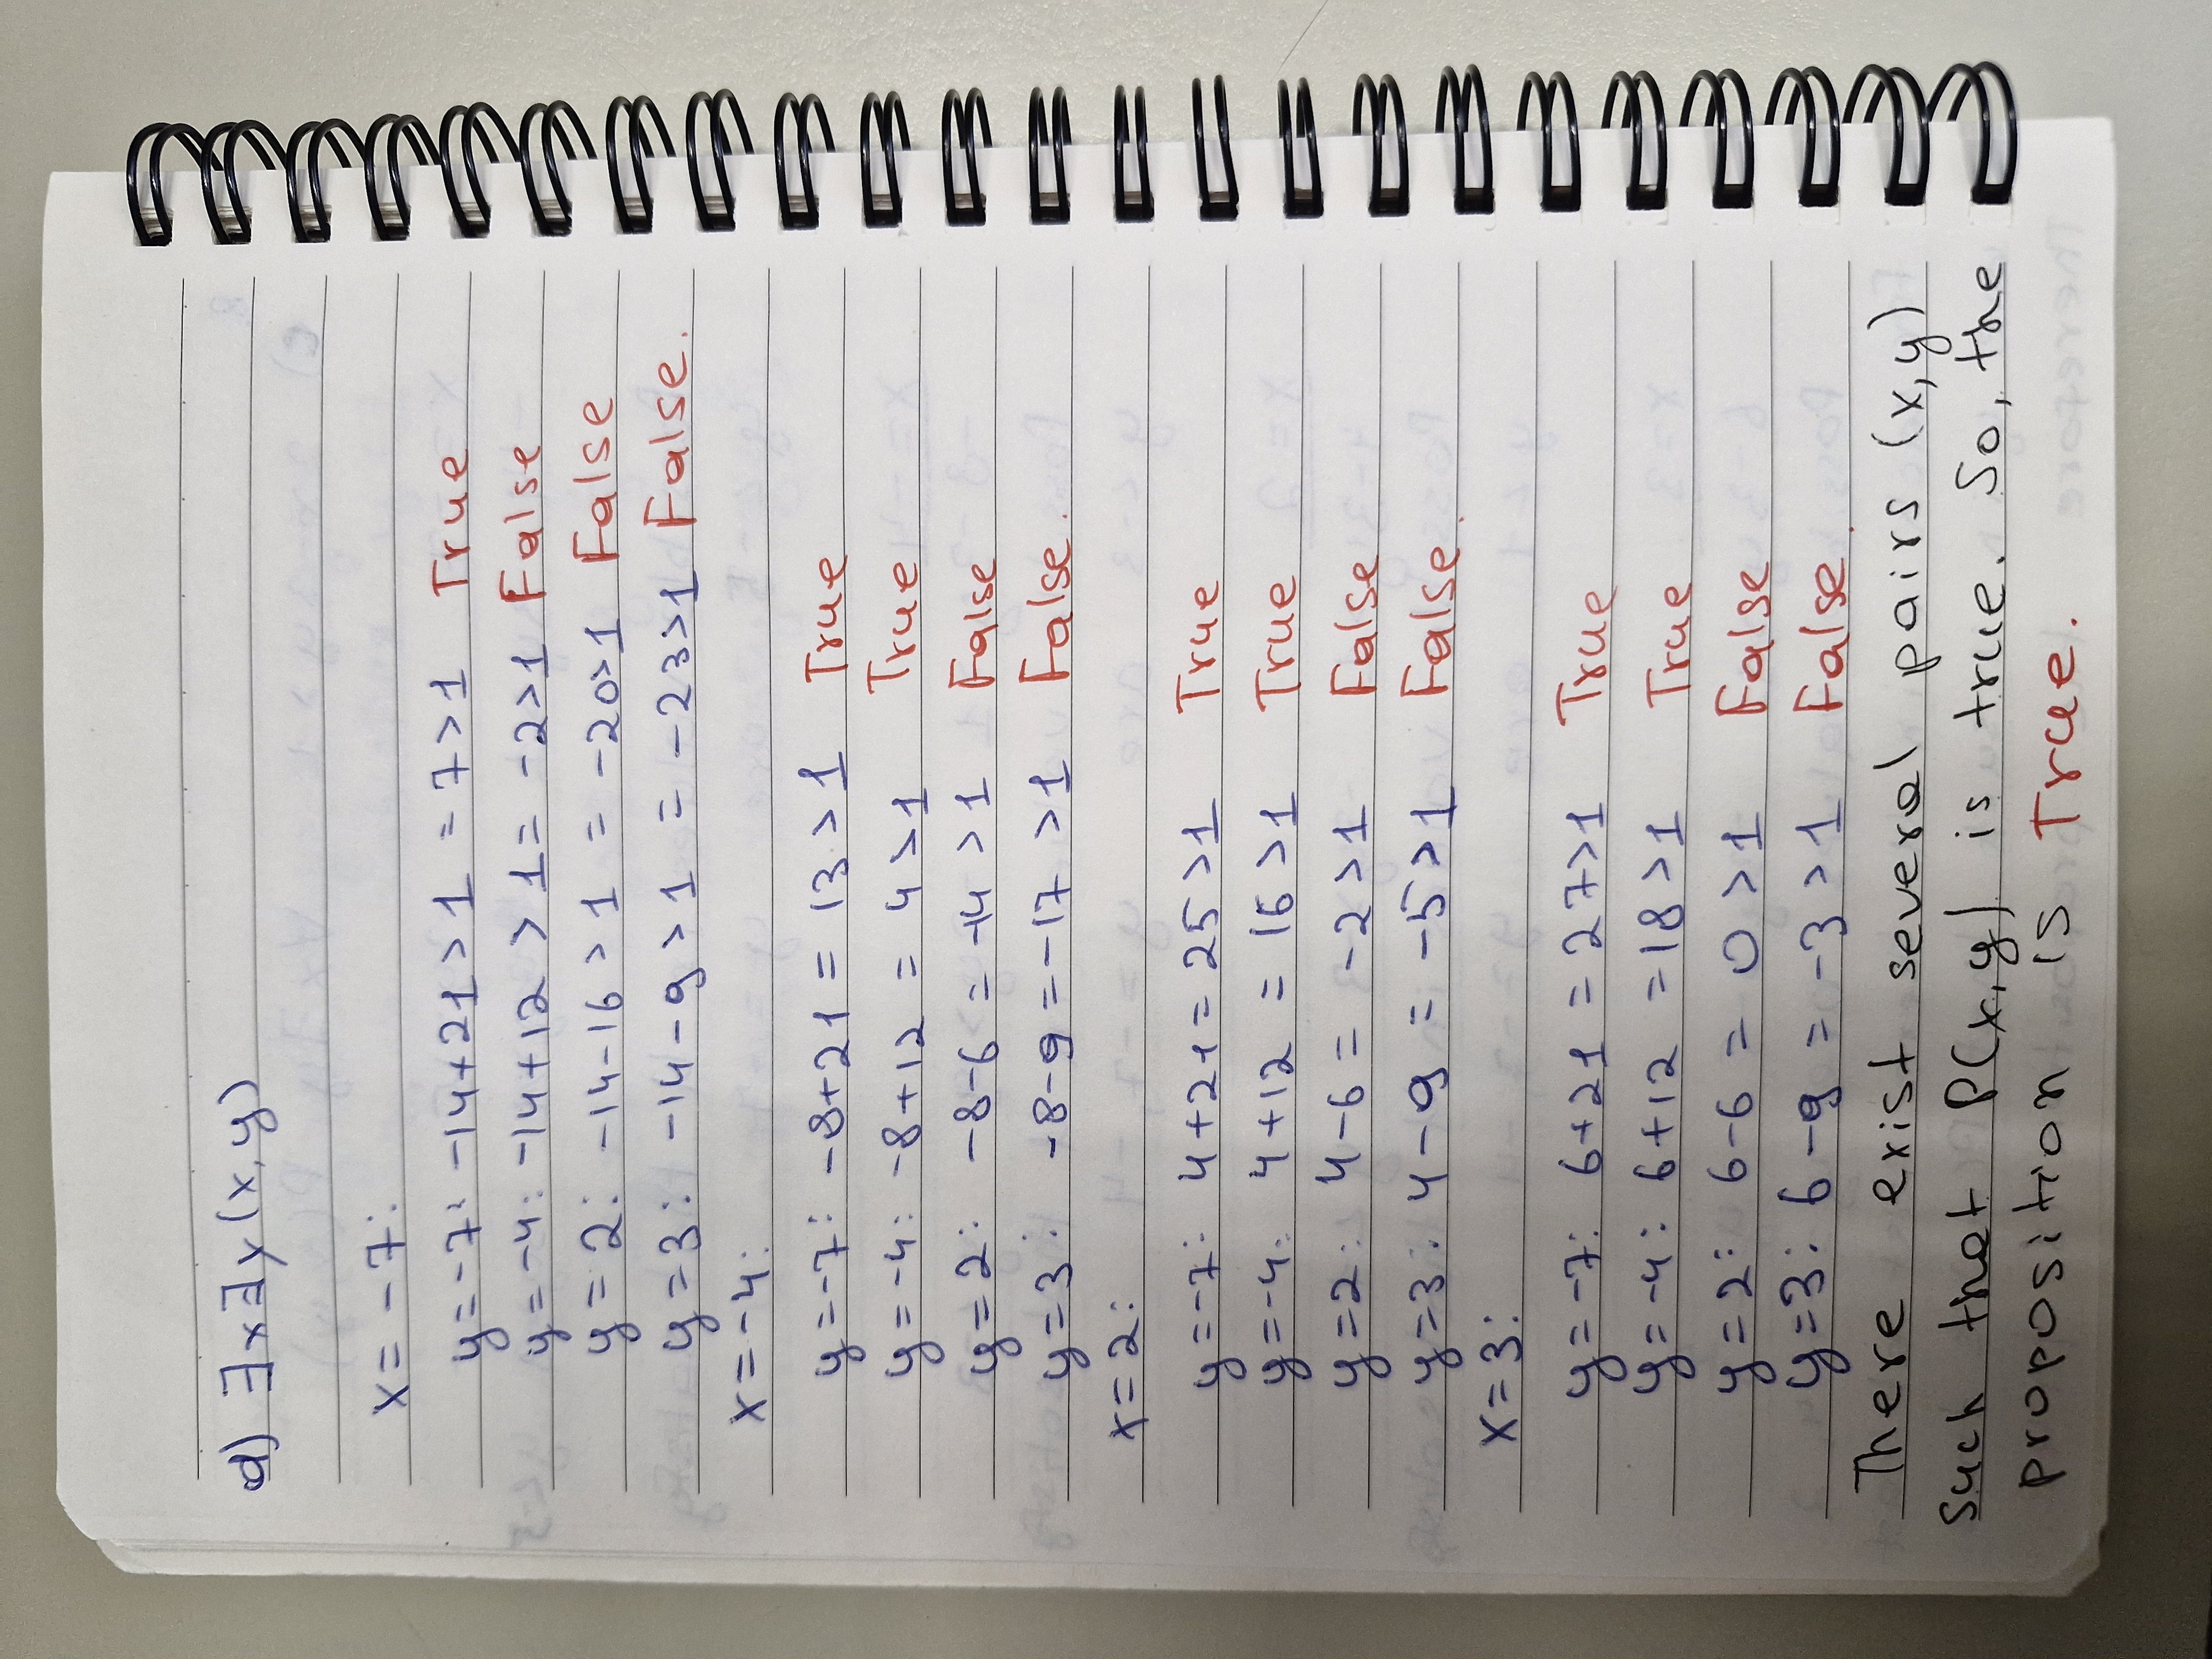 d) ∃x∃y(x,y)
x = -7:
y = -7: -14+21 > 1 = 7 > 1 True
y = -4: -14+12 > 1 = -2>1 False
y = 2: -14-16 > 1 = -20>1 False
y = 3: -14-9 > 1 = -23>1 False.
x = -4:
y = -7: -8+21 = 13 > 1 True
y = -4: -8+12 = 4 > 1 True
y = 2: -8-6 = -14 > 1 False
y = 3: -8-9 = -17 > 1 False.
x = 2:
y = -7: 4+21 = 25 > 1 True
y = -4: 4+12 = 16 > 1 True
y = 2: 4-6 = -2 > 1 False
y = 3: 4-9 = -5 > 1 False.
x = 3:
y = -7: 6+21 = 27 > 1 True
y = -4: 6+12 = 18 > 1 True
y = 2: 6-6 = 0 > 1 False
y = 3: 6-9 = -3 > 1 False.
There exist several pairs (x,y)
such that P(x,y) is true. So, the
proposition is True.